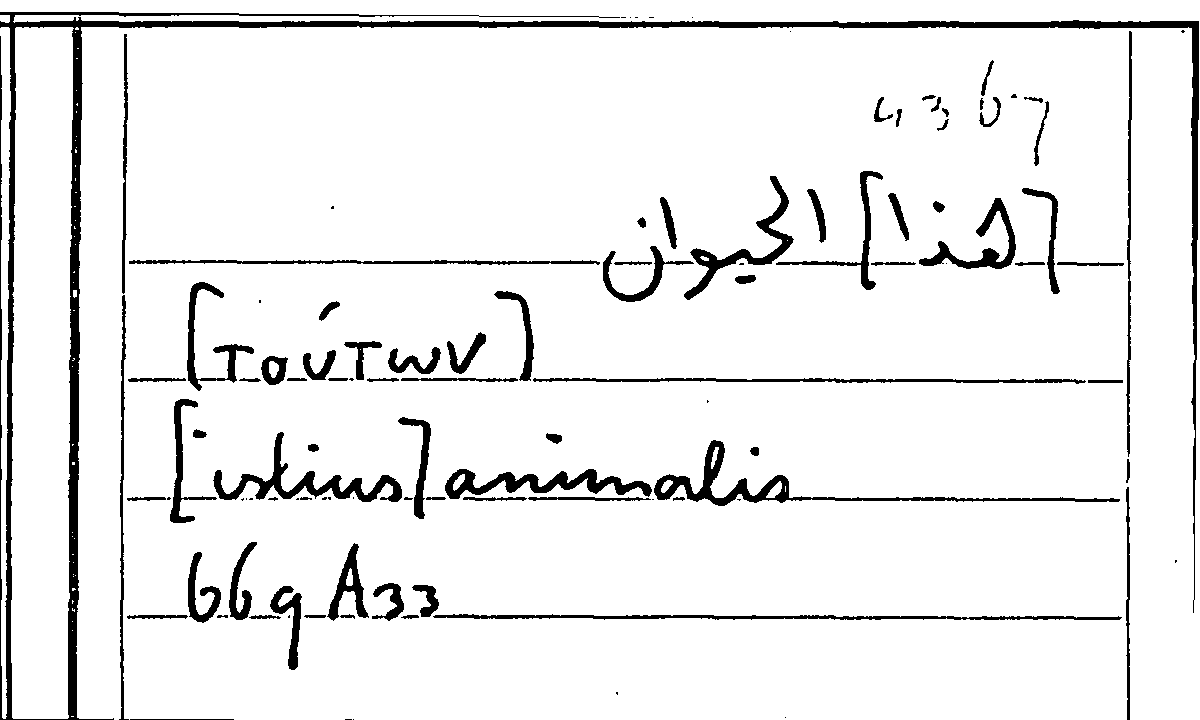 4367
[هذا] الحيوان
[τούτων]
[istius] animalis
669 A33